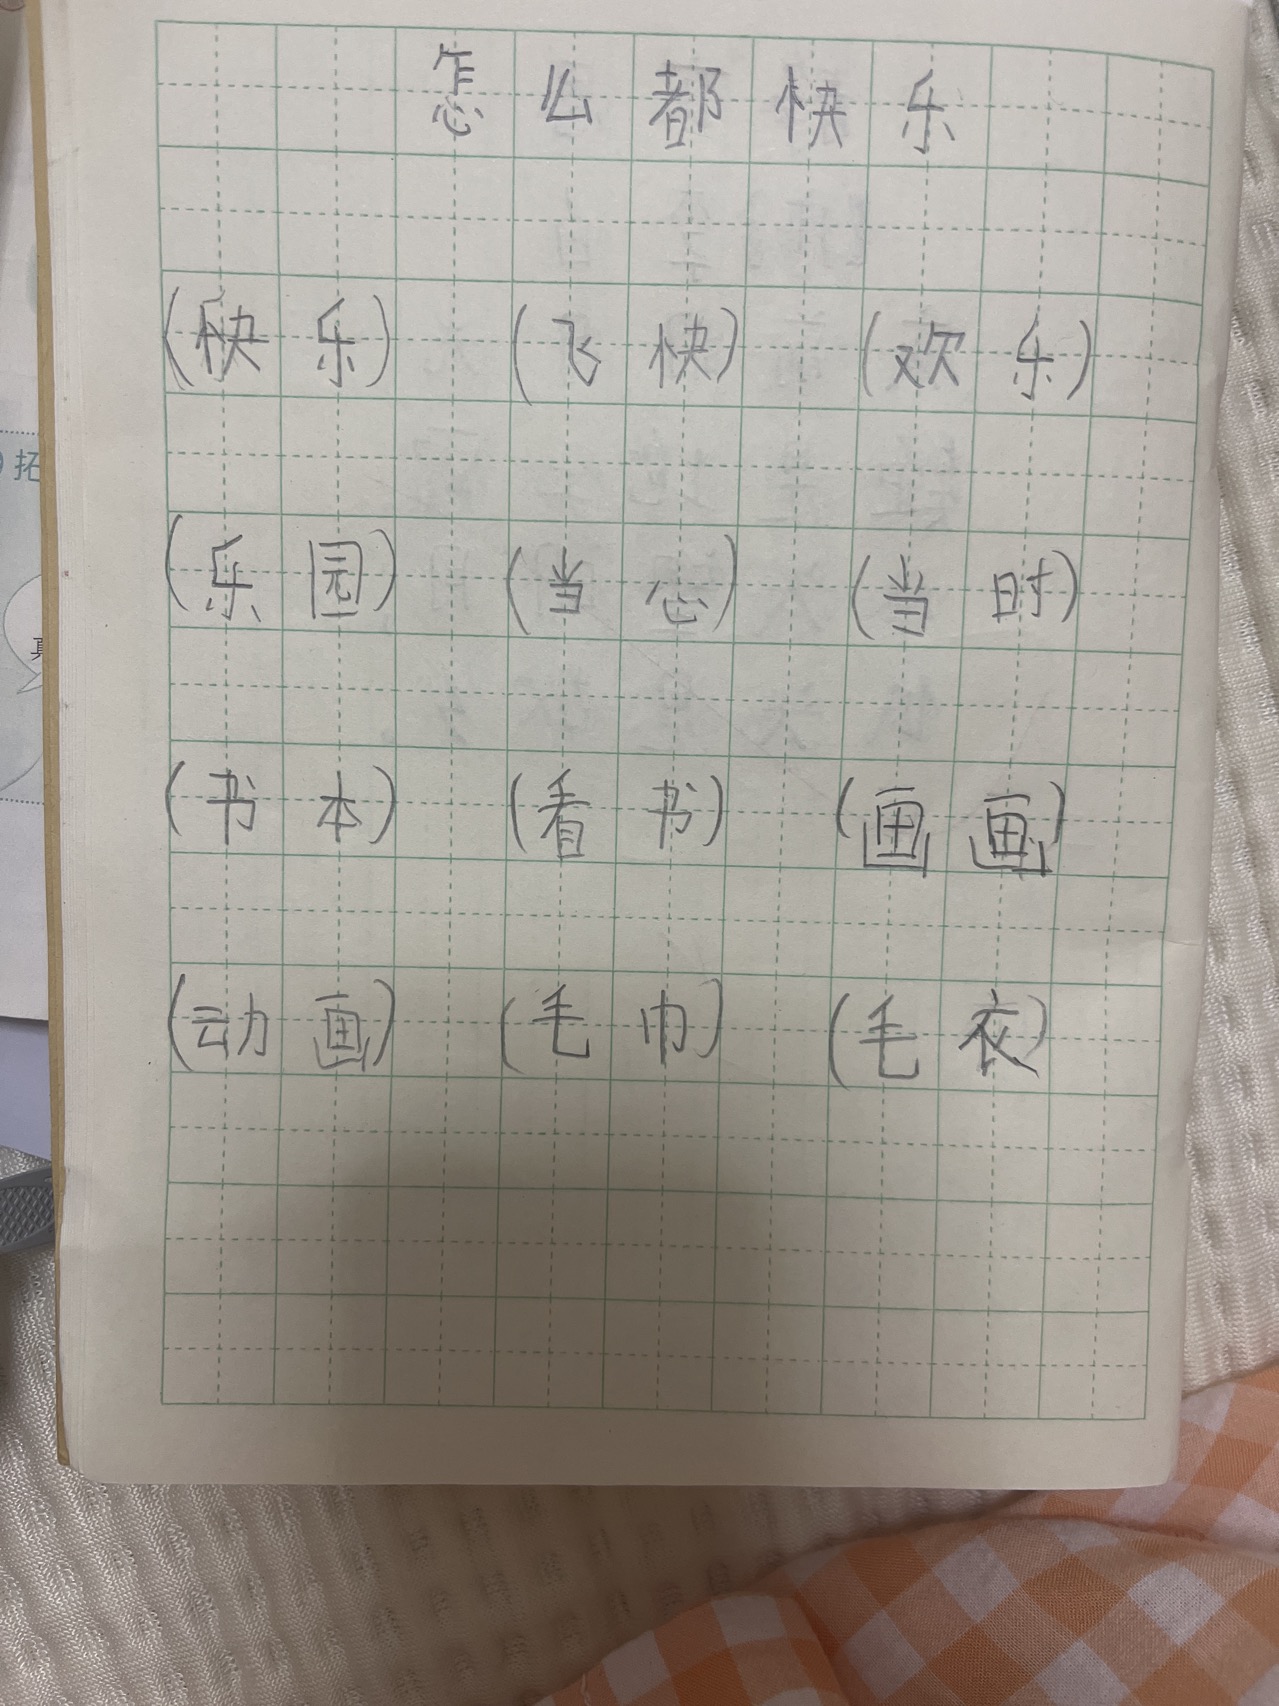 怎么都快乐
(快乐) (飞快) (欢乐)
(乐园) (当心) (当时)
(书本) (看书) (画画)
(动画) (毛巾) (毛衣)
拓